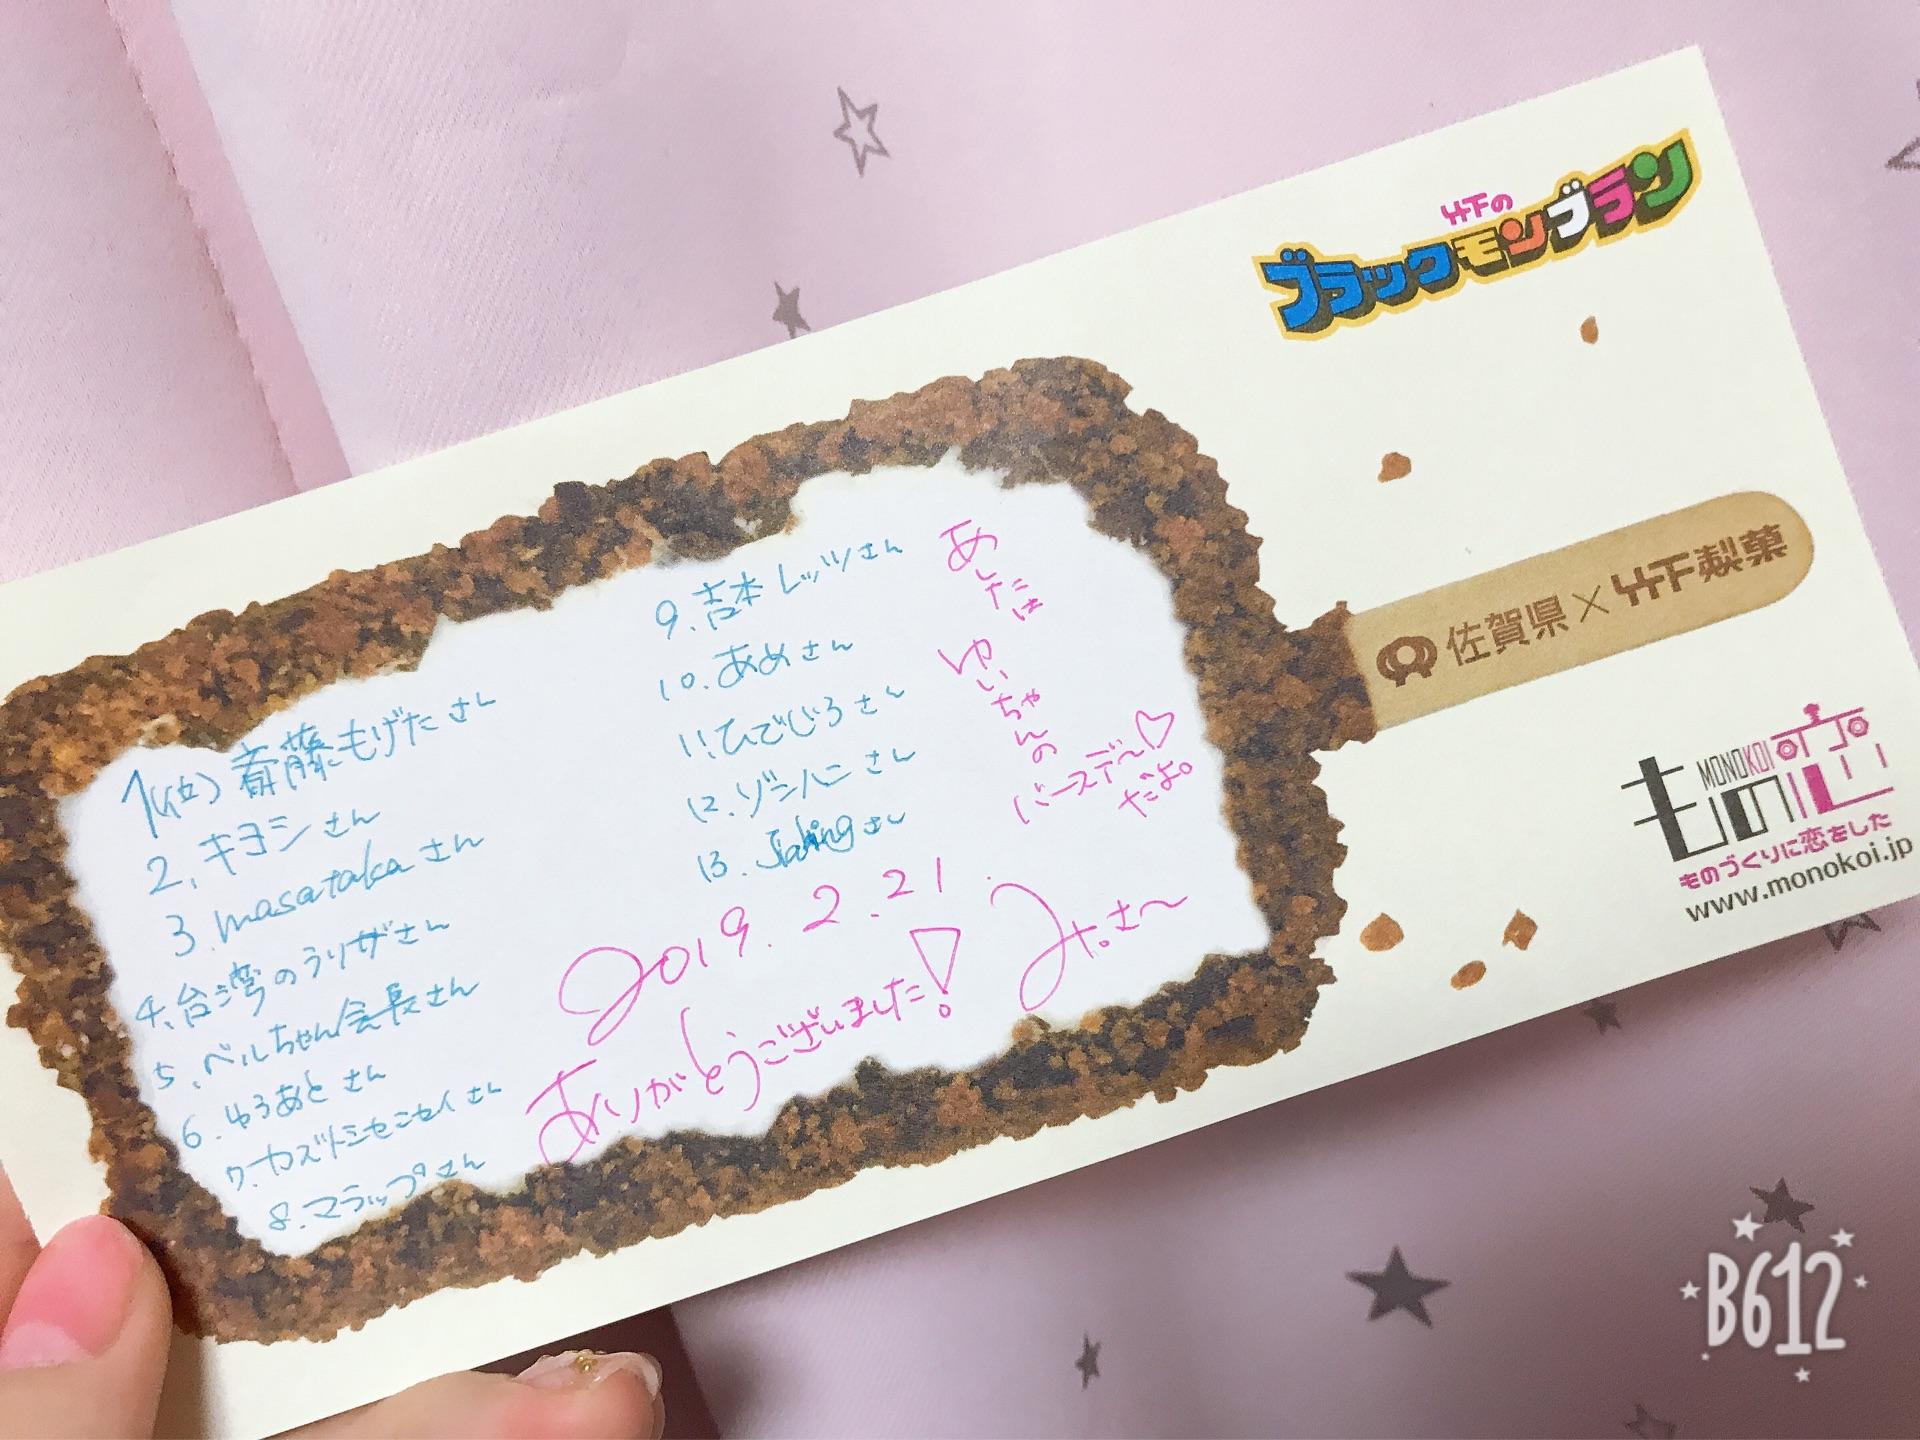 竹下の
ブラックモンブラン
1(位) 斎藤もげたさん
2. キヨシさん
3. masatakaさん
4. 台湾のうリサさん
5. ベルちゃん会長さん
6. ゆうあとさん
7. カズトミセンセイさん
8. マラップさん
9. 吉本レッツさん
10. あめさん
11. ひでじろさん
12. ゾンハニさん
13. さん
あしたは
ゆいちゃんの
バースデー♡
だよ。
2019.2.21.
ありがとうございました!
佐賀県×竹下製菓
もの恋
MONOKOI
ものづくりに恋をした
www.monokoi.jp
B612